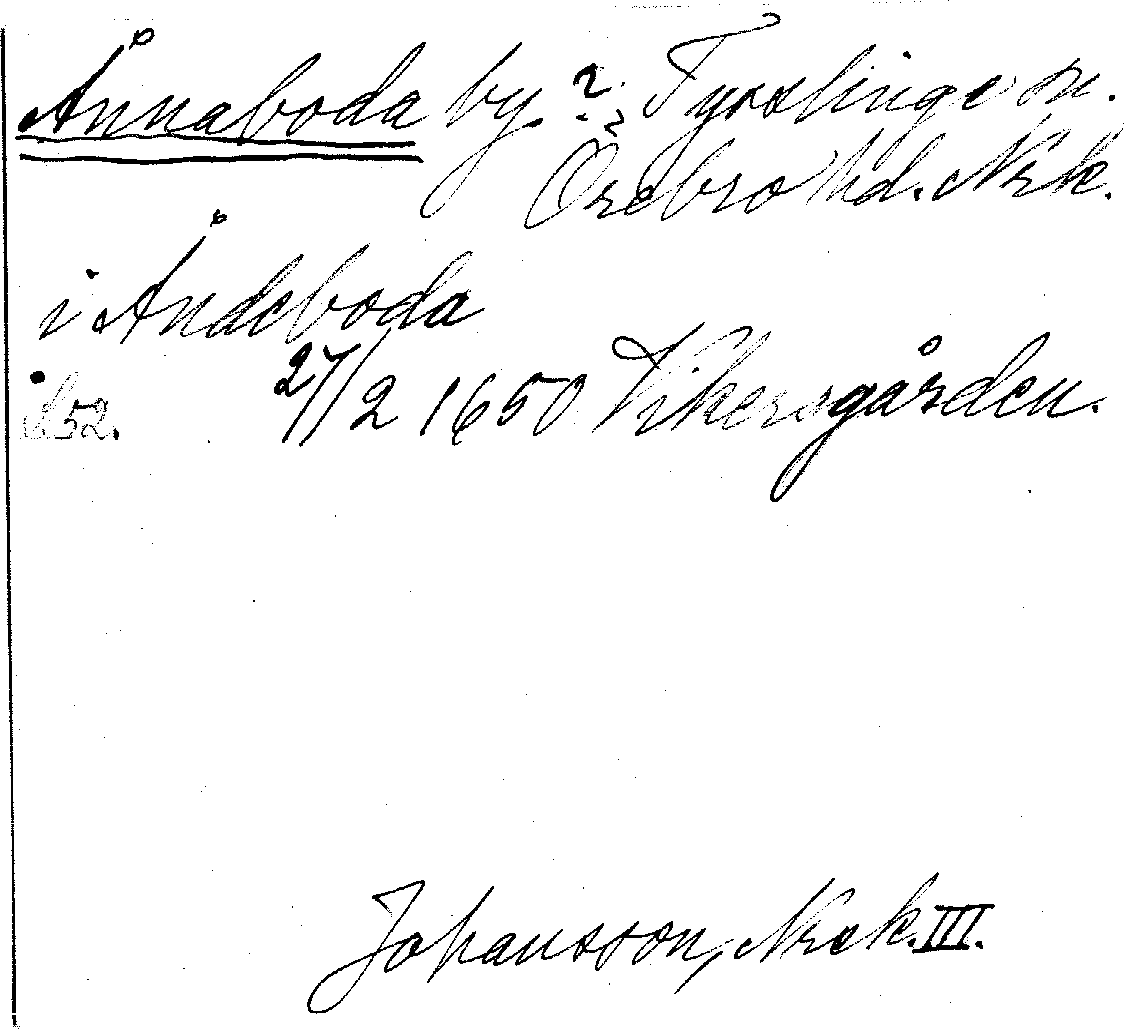 Ånnaboda by. ? Tysslinge sn.
Örebro hd. Nrk.
i Åndeboda
s. 52. 27/2 1650 Vikersgården.
Johansson, Nrck. III.